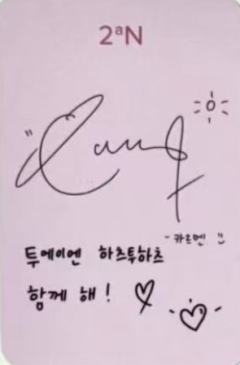 2ªN
- 카르멘
투에이엔 하츠투하츠
함께 해!